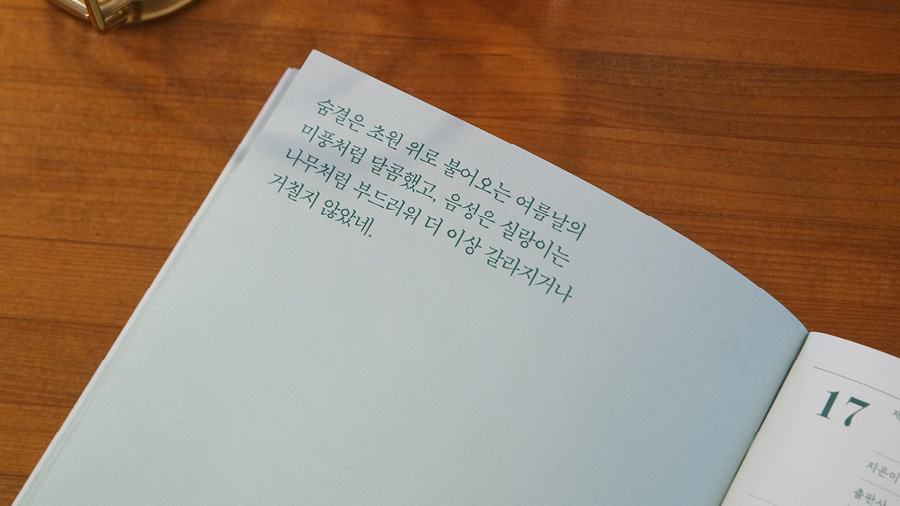 숨결은 초원 위로 불어오는 여름날의
미풍처럼 달콤했고, 음성은 살랑이는
나무처럼 부드러워 더 이상 갈라지거나
거칠지 않았네.
17
지은이
출판사